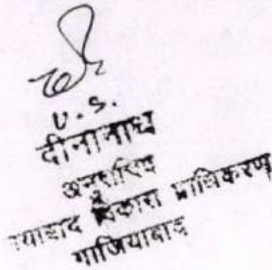 U.S.
दीनानाथ
अनुसचिव
विकास प्राधिकरण
गाजियाबाद